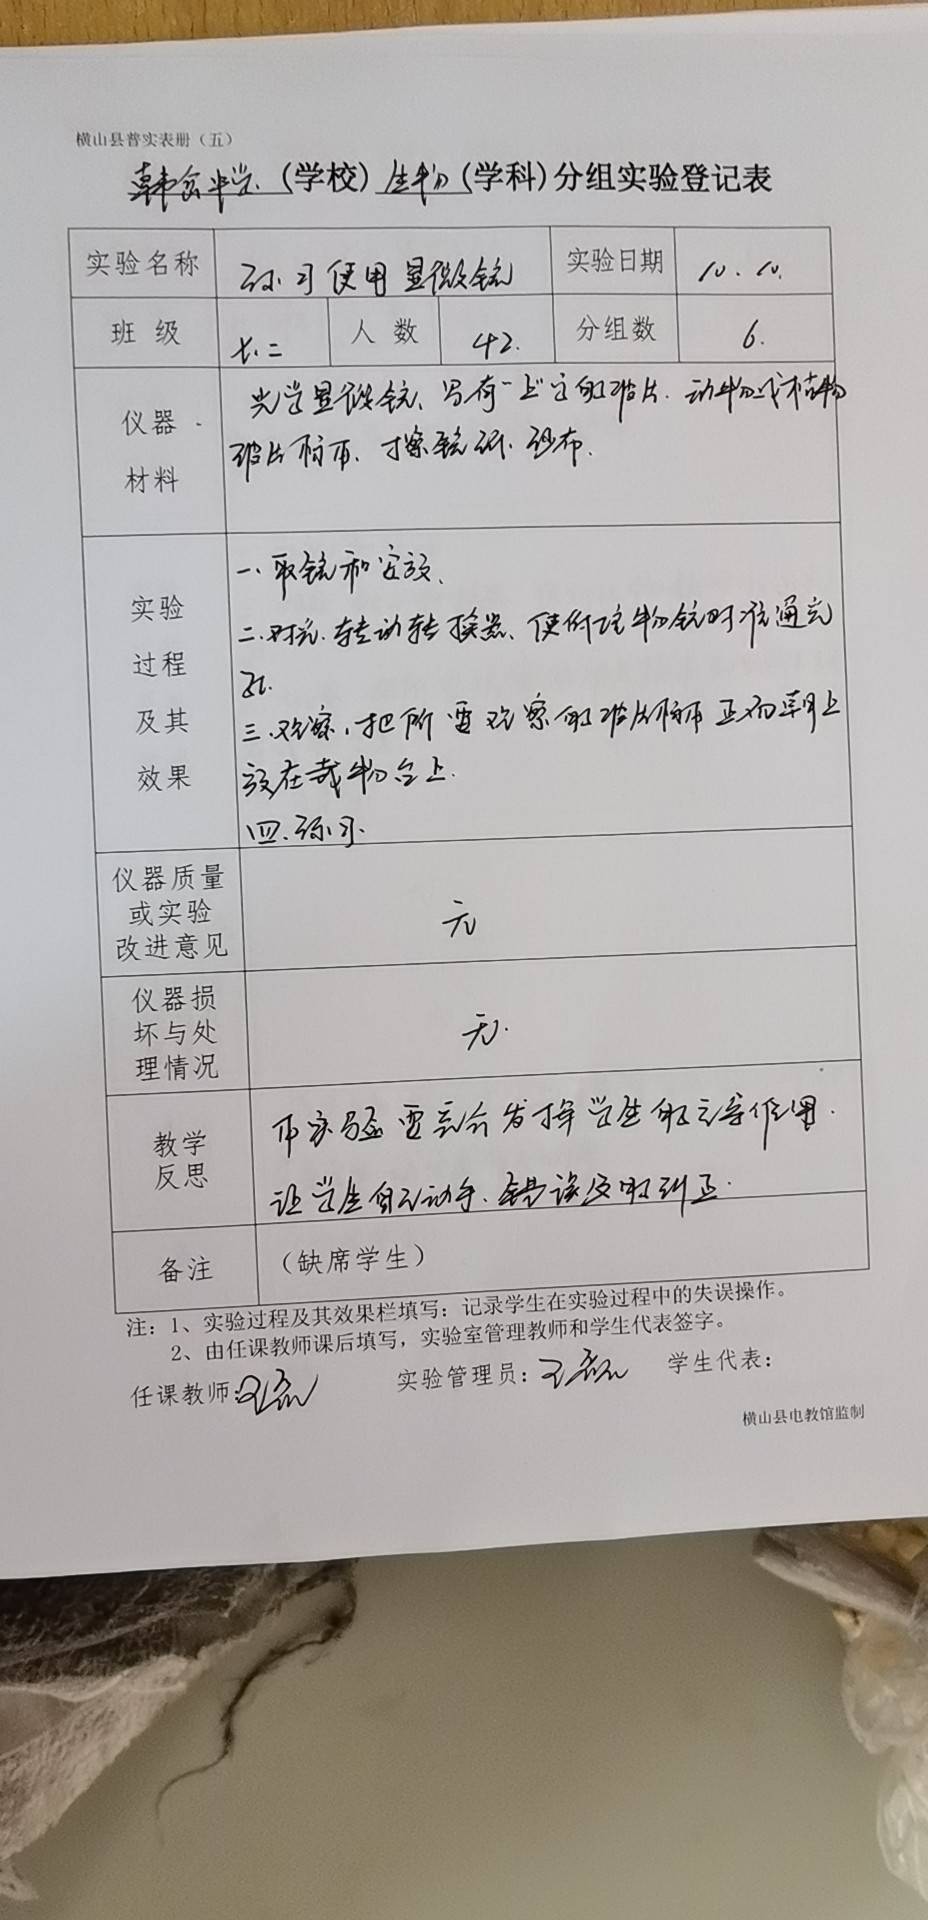 横山县普实表册（五）
韩岔中学（学校）生物（学科）分组实验登记表
实验名称 练习使用显微镜 实验日期 10.10.
班级 七.二 人数 42. 分组数 6.
仪器材料
光学显微镜、写有“上”字的玻片.动物或植物
玻片标本、擦镜纸.纱布.
实验过程及其效果
一、取镜和安放、
二.对光.转动转换器、使低倍物镜对准通光
孔.
三.观察,把所要观察的玻片标本正面朝上
放在载物台上.
四.练习.
仪器质量或实验改进意见 无
仪器损坏与处理情况 无.
教学反思
本实验要充分发挥学生的主导作用.
让学生自己动手.错误及时纠正.
备注 （缺席学生）
注：1、实验过程及其效果栏填写：记录学生在实验过程中的失误操作。
2、由任课教师课后填写，实验室管理教师和学生代表签字。
任课教师: 实验管理员: 学生代表:
横山县电教馆监制